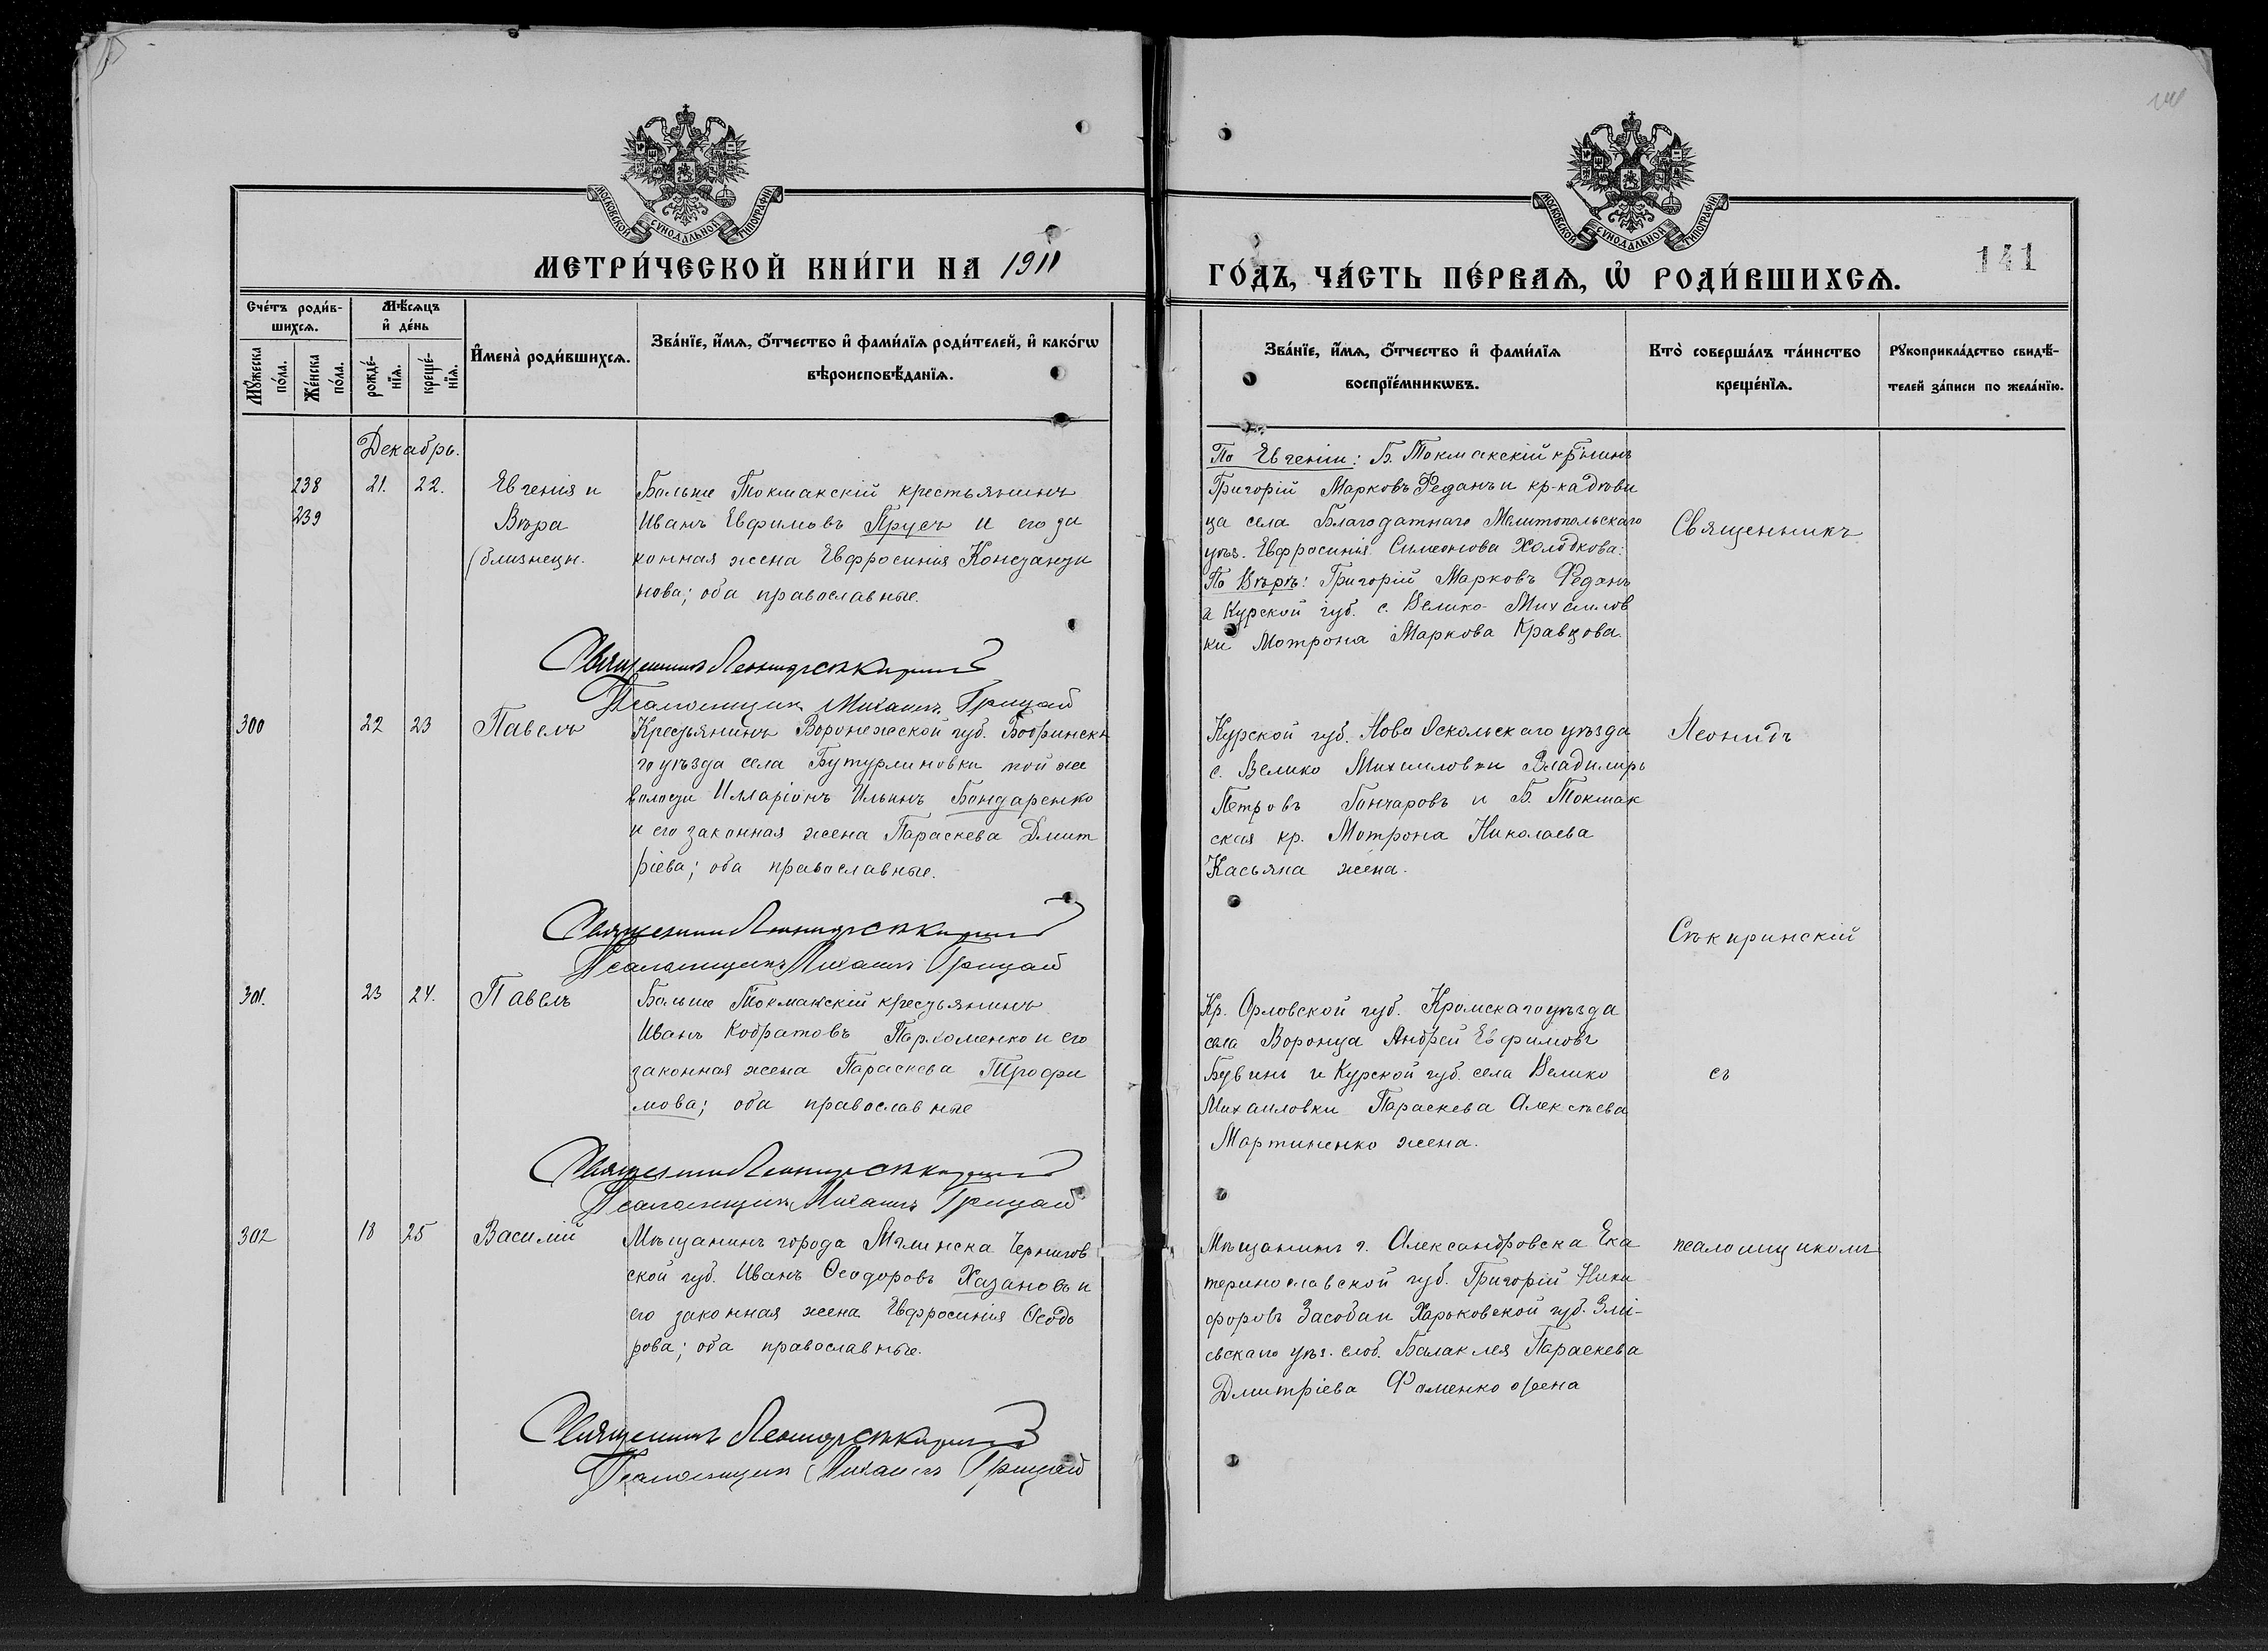 МОСКОВСКОЙ СѴНОДАЛЬНОЙ ТИПОГРАФІИ
МЕТРИ́ЧЕСКОЙ КНИ́ГИ НА 1911
Сче́тъ роди́в-
шихсѧ.
Мѣ́сѧцъ
и҆ де́нь
Мꙋ́жеска
по́ла.
Же́нска
по́ла.
рожде́-
нїѧ.
креще́-
нїѧ.
И҆мена̀ роди́вшихсѧ.
Зва́нїе, и҆́мѧ, ѻ҆́тчество и҆ фами́лїѧ роди́телей, и҆ како́гѡ
вѣроисповѣ́данїѧ.
Декабрь.
238 21. 22. Евгенія и Больше Токмакскій крестьянинъ
239 Вѣра Иванъ Евфимовъ Прусъ и его за
(близнецы. конная жена Евфросинія Константи
нова; оба православные.
Священникъ Леонидъ Сѣкиринскій
Псаломщикъ Михаилъ Грицай
300 22 23 Павелъ Крестьянинъ Воронежской губ. Бобринска
го уѣзда села Бутурлиновки той же
волости Илларіонъ Ильинъ Бондаренко
и его законная жена Параскева Дмит
ріева; оба православные.
Священникъ Леонидъ Сѣкиринскій
Псаломщикъ Михаилъ Грицай
301. 23 24. Павелъ Больше Токмакскій крестьянинъ
Иванъ Кодратовъ Пархоменко и его
законная жена Параскева Трофи
мова; оба православные
Священникъ Леонидъ Сѣкиринскій
Псаломщикъ Михаилъ Грицай
302 18 25 Василій Мѣщанинъ города Мглинска Чернигов
ской губ. Иванъ Ѳеодоровъ Хазановъ и
его законная жена Евфросинія Ѳеодо
рова; оба православные.
Священникъ Леонидъ Сѣкиринскій
Псаломщикъ Михаилъ Грицай
МОСКОВСКОЙ СѴНОДАЛЬНОЙ ТИПОГРАФІИ
141
ГО́ДЪ, ЧА́СТЬ ПЕ́РВАѦ, Ѡ҆ РОДИ́ВШИХСѦ.
Зва́нїе, и҆́мѧ, ѻ҆́тчество и҆ фами́лїѧ
воспрїе́мникѡвъ.
Кто̀ соверша́лъ та́инство
креще́нїѧ.
Рꙋкоприкла́дство свидѣ́-
телей за́писи по жела́нїю.
По Евгеніи: Б. Токмакскій кр-нинъ
Григорій Марковъ Феданъ и кр-ка дѣви
ца села Благодатнаго Мелитопольскаго
уѣз. Евфросинія Симеонова Холодкова:
По Вѣрѣ: Григорій Марковъ Феданъ
и Курской губ. с. Велико-Михайлов
ки Мотрона Маркова Кравцова.
Священникъ
Курской губ. Ново Оскольскаго уѣзда
с. Велико Михайловки Владимиръ
Петровъ Гончаровъ и Б. Токмак
ская кр. Мотрона Николаева
Касьяна жена.
Леонидъ
Сѣкиринскій
Кр. Орловской губ. Кромскаго уѣзда
села Воронца Андрей Евфимовъ
Бувинъ и Курской губ. села Велико
Михаиловки Параскева Алексѣева
Мартиненко жена.
съ
Мѣщанинъ г. Александровска Ека
теринославской губ. Григорій Ники
форовъ Засобаи Харьковской губ. Змі-
евскаго уѣз. слоб. Балаклея Параскева
Дмитріева Фоменко жена
псаломщикомъ